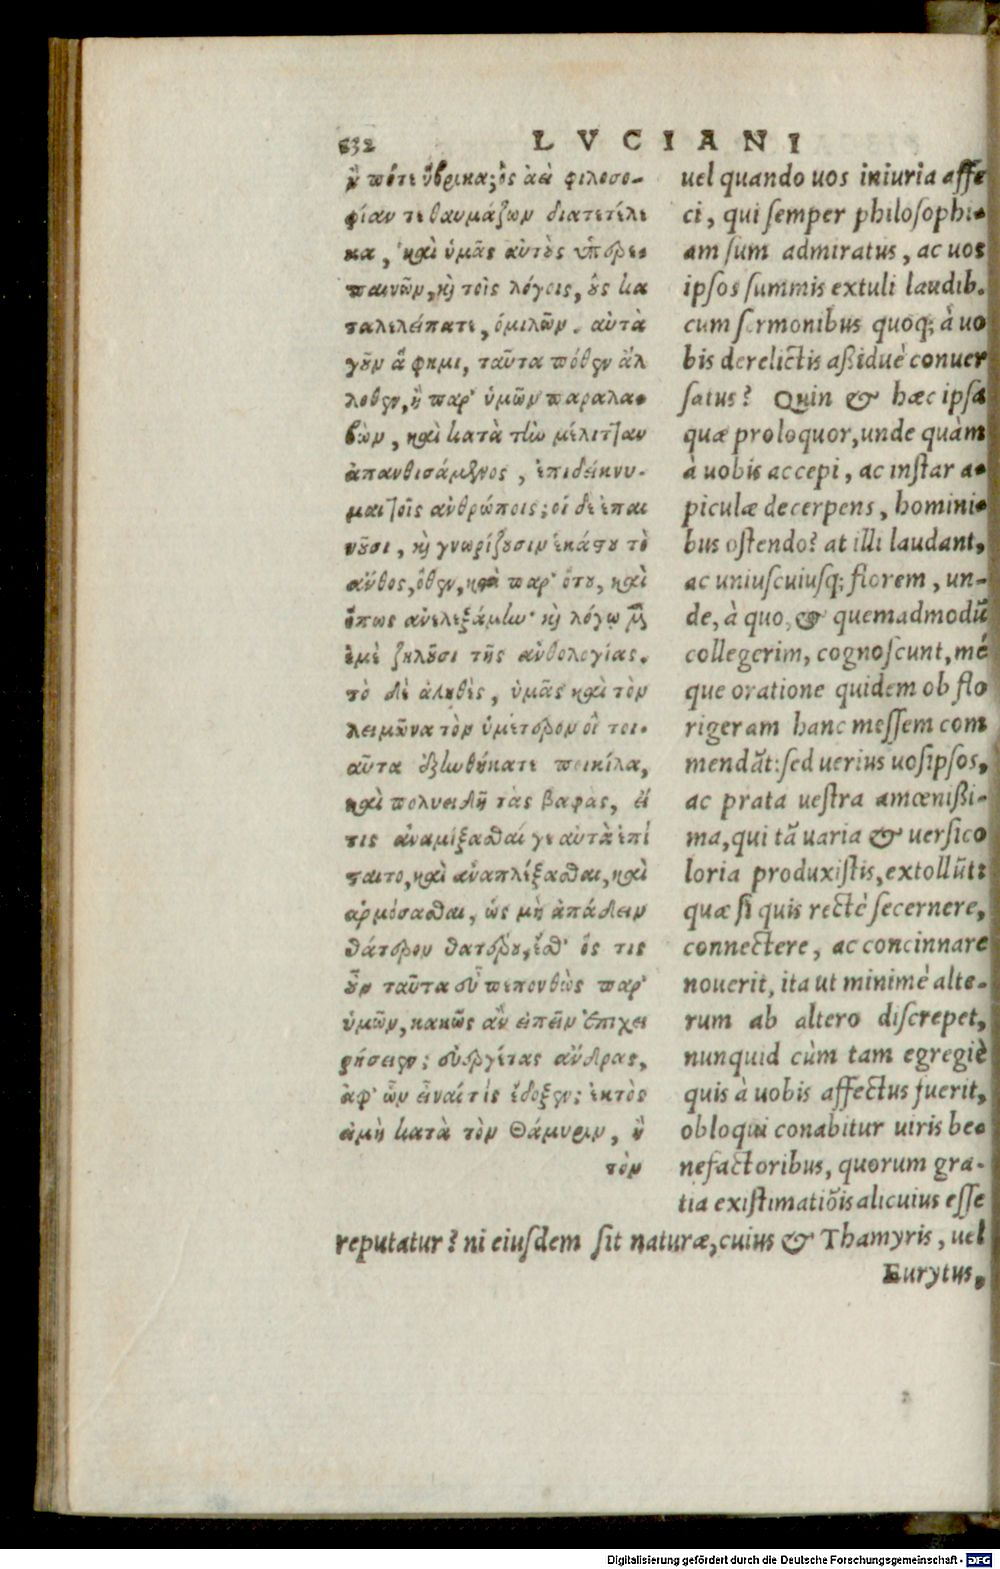 832 LVCIANI
ἢ πότε ὕβρικα; ὃς ἀεὶ φιλοσο-
φίαν τε θαυμάζων διατετέλε
κα, καὶ ὑμᾶς αὐτοὺς ὑπερε-
παινῶν, καὶ τοῖς λόγοις, οὓς κα
ταλελοίπατε, ὁμιλῶν. αὐτὰ
γοῦν ἅ φημι, ταῦτα πόθεν ἀλ
λοθεν, ἢ παρ' ὑμῶν παραλα-
βὼν, καὶ κατὰ τὴν μέλιτταν
ἀπανθισάμενος, ἐπιδείκνυ-
μαι τοῖς ἀνθρώποις; οἱ δὲ ἐπαι
νοῦσι, καὶ γνωρίζουσιν ἑκάστου τὸ
ἄνθος, ὅθεν, καὶ παρ' ὅτου, καὶ
ὅπως ἀνελεξάμην· καὶ λόγῳ μὲν
ἐμὲ ζηλοῦσι τῆς ἀνθολογίας.
τὸ δὲ ἀληθὲς, ὑμᾶς καὶ τὸν
λειμῶνα τὸν ὑμέτερον οἳ τοι-
αῦτα ἐξηνθήκατε ποικίλα,
καὶ πολυειδῆ τὰς βαφὰς, εἴ
τις ἀναμίξασθαί γε αὐτὰ ἐπί
σταιτο, καὶ ἀναπλέξασθαι, καὶ
ἁρμόσασθαι, ὡς μὴ ἀπᾴδειν
θάτερον θατέρου, ἔσθ' ὅς τις
οὖν ταῦτα εὖ πεπονθὼς παρ'
ὑμῶν, κακῶς ἂν εἰπεῖν ἐπιχει
ρήσειεν; εὐεργέτας ἄνδρας,
ἀφ' ὧν εἶναί τις ἔδοξεν; ἐκτὸς
εἰ μὴ κατὰ τὸν Θάμυριν, ἢ
τὸν
uel quando uos iniuria affe
ci, qui semper philosophi-
am sum admiratus, ac uos
ipsos summis extuli laudib.
cum sermonibus quoq; à uo
bis derelictis aßiduè conuer
satus? Quin & hæc ipsa
quæ proloquor, unde quàm
à uobis accepi, ac instar a-
piculæ decerpens, homini-
bus ostendo? at illi laudant,
ac uniuscuiusq; florem, un-
de, à quo, & quemadmodũ
collegerim, cognoscunt, mé
que oratione quidem ob flo
rigeram hanc messem com
mendãt: sed uerius uosipsos,
ac prata uestra amœnißi-
ma, qui tã uaria & uersico
loria produxistis, extollũt:
quæ si quis rectè secernere,
connectere, ac concinnare
nouerit, ita ut minimè alte-
rum ab altero discrepet,
nunquid cùm tam egregiè
quis à uobis affectus fuerit,
obloqui conabitur uiris be-
nefactoribus, quorum gra-
tia existimatiõis alicuius esse
reputatur? ni eiusdem sit naturæ, cuius & Thamyris, uel
Eurytus,
Digitalisierung gefördert durch die Deutsche Forschungsgemeinschaft - DFG